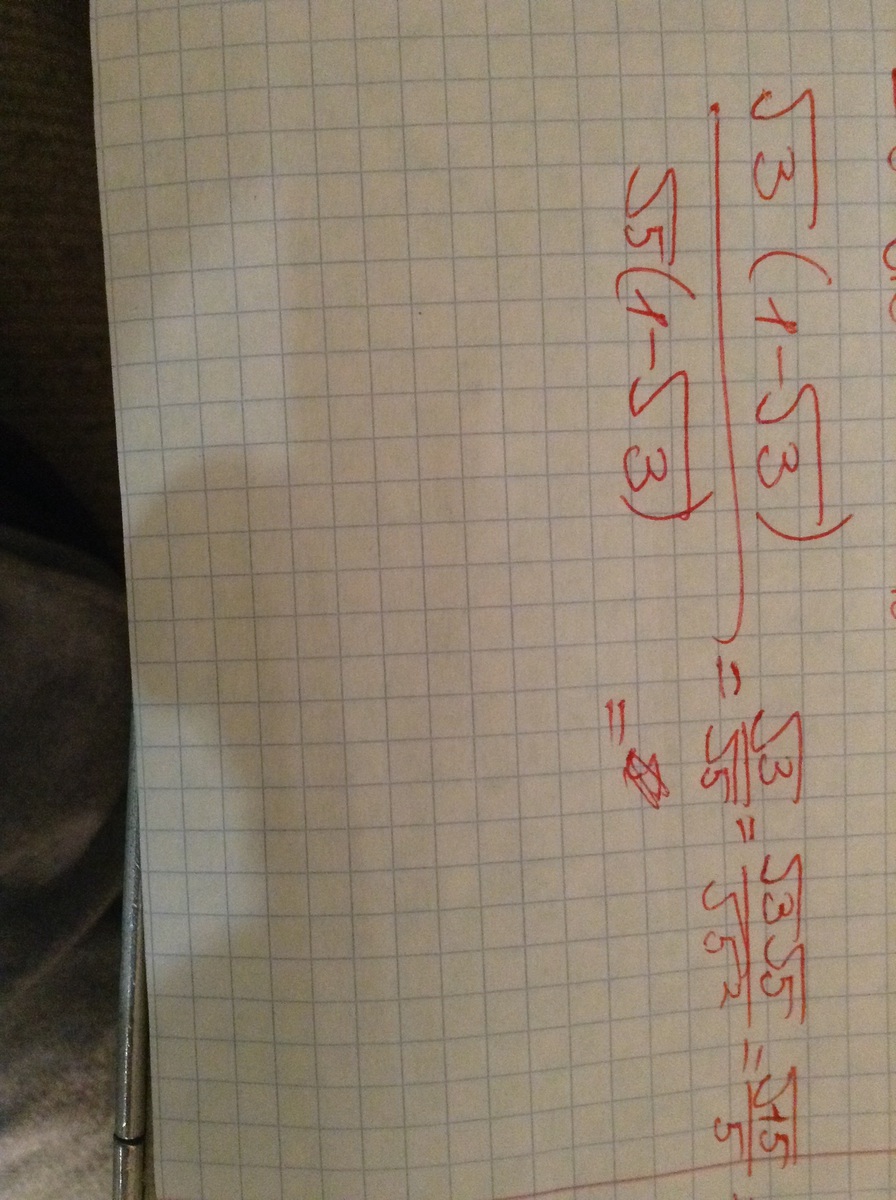 √3(1-√3)/√5(1-√3) = √3/√5 = √3√5/√5² = √15/5
=